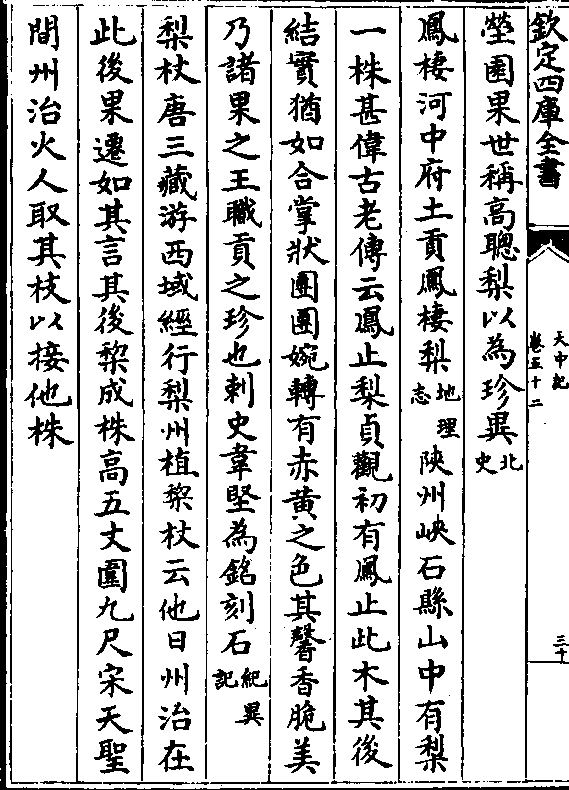 欽定四庫全書
天中記
卷五十二
三十
塋園果世稱高聰梨以為珍異北史
鳳棲河中府土貢鳳棲梨地理志 陜州峽石縣山中有梨
一株甚偉古老傳云鳳止梨貞觀初有鳳止此木其後
結實猶如合掌狀團團婉轉有赤黄之色其馨香脆美
乃諸果之王職貢之珍也刺史韋堅為銘刻石紀異記
梨杖唐三藏游西域經行梨州植棃杖云他日州治在
此後果遷如其言其後棃成株高五丈圍九尺宋天聖
間州治火人取其枝以接他株